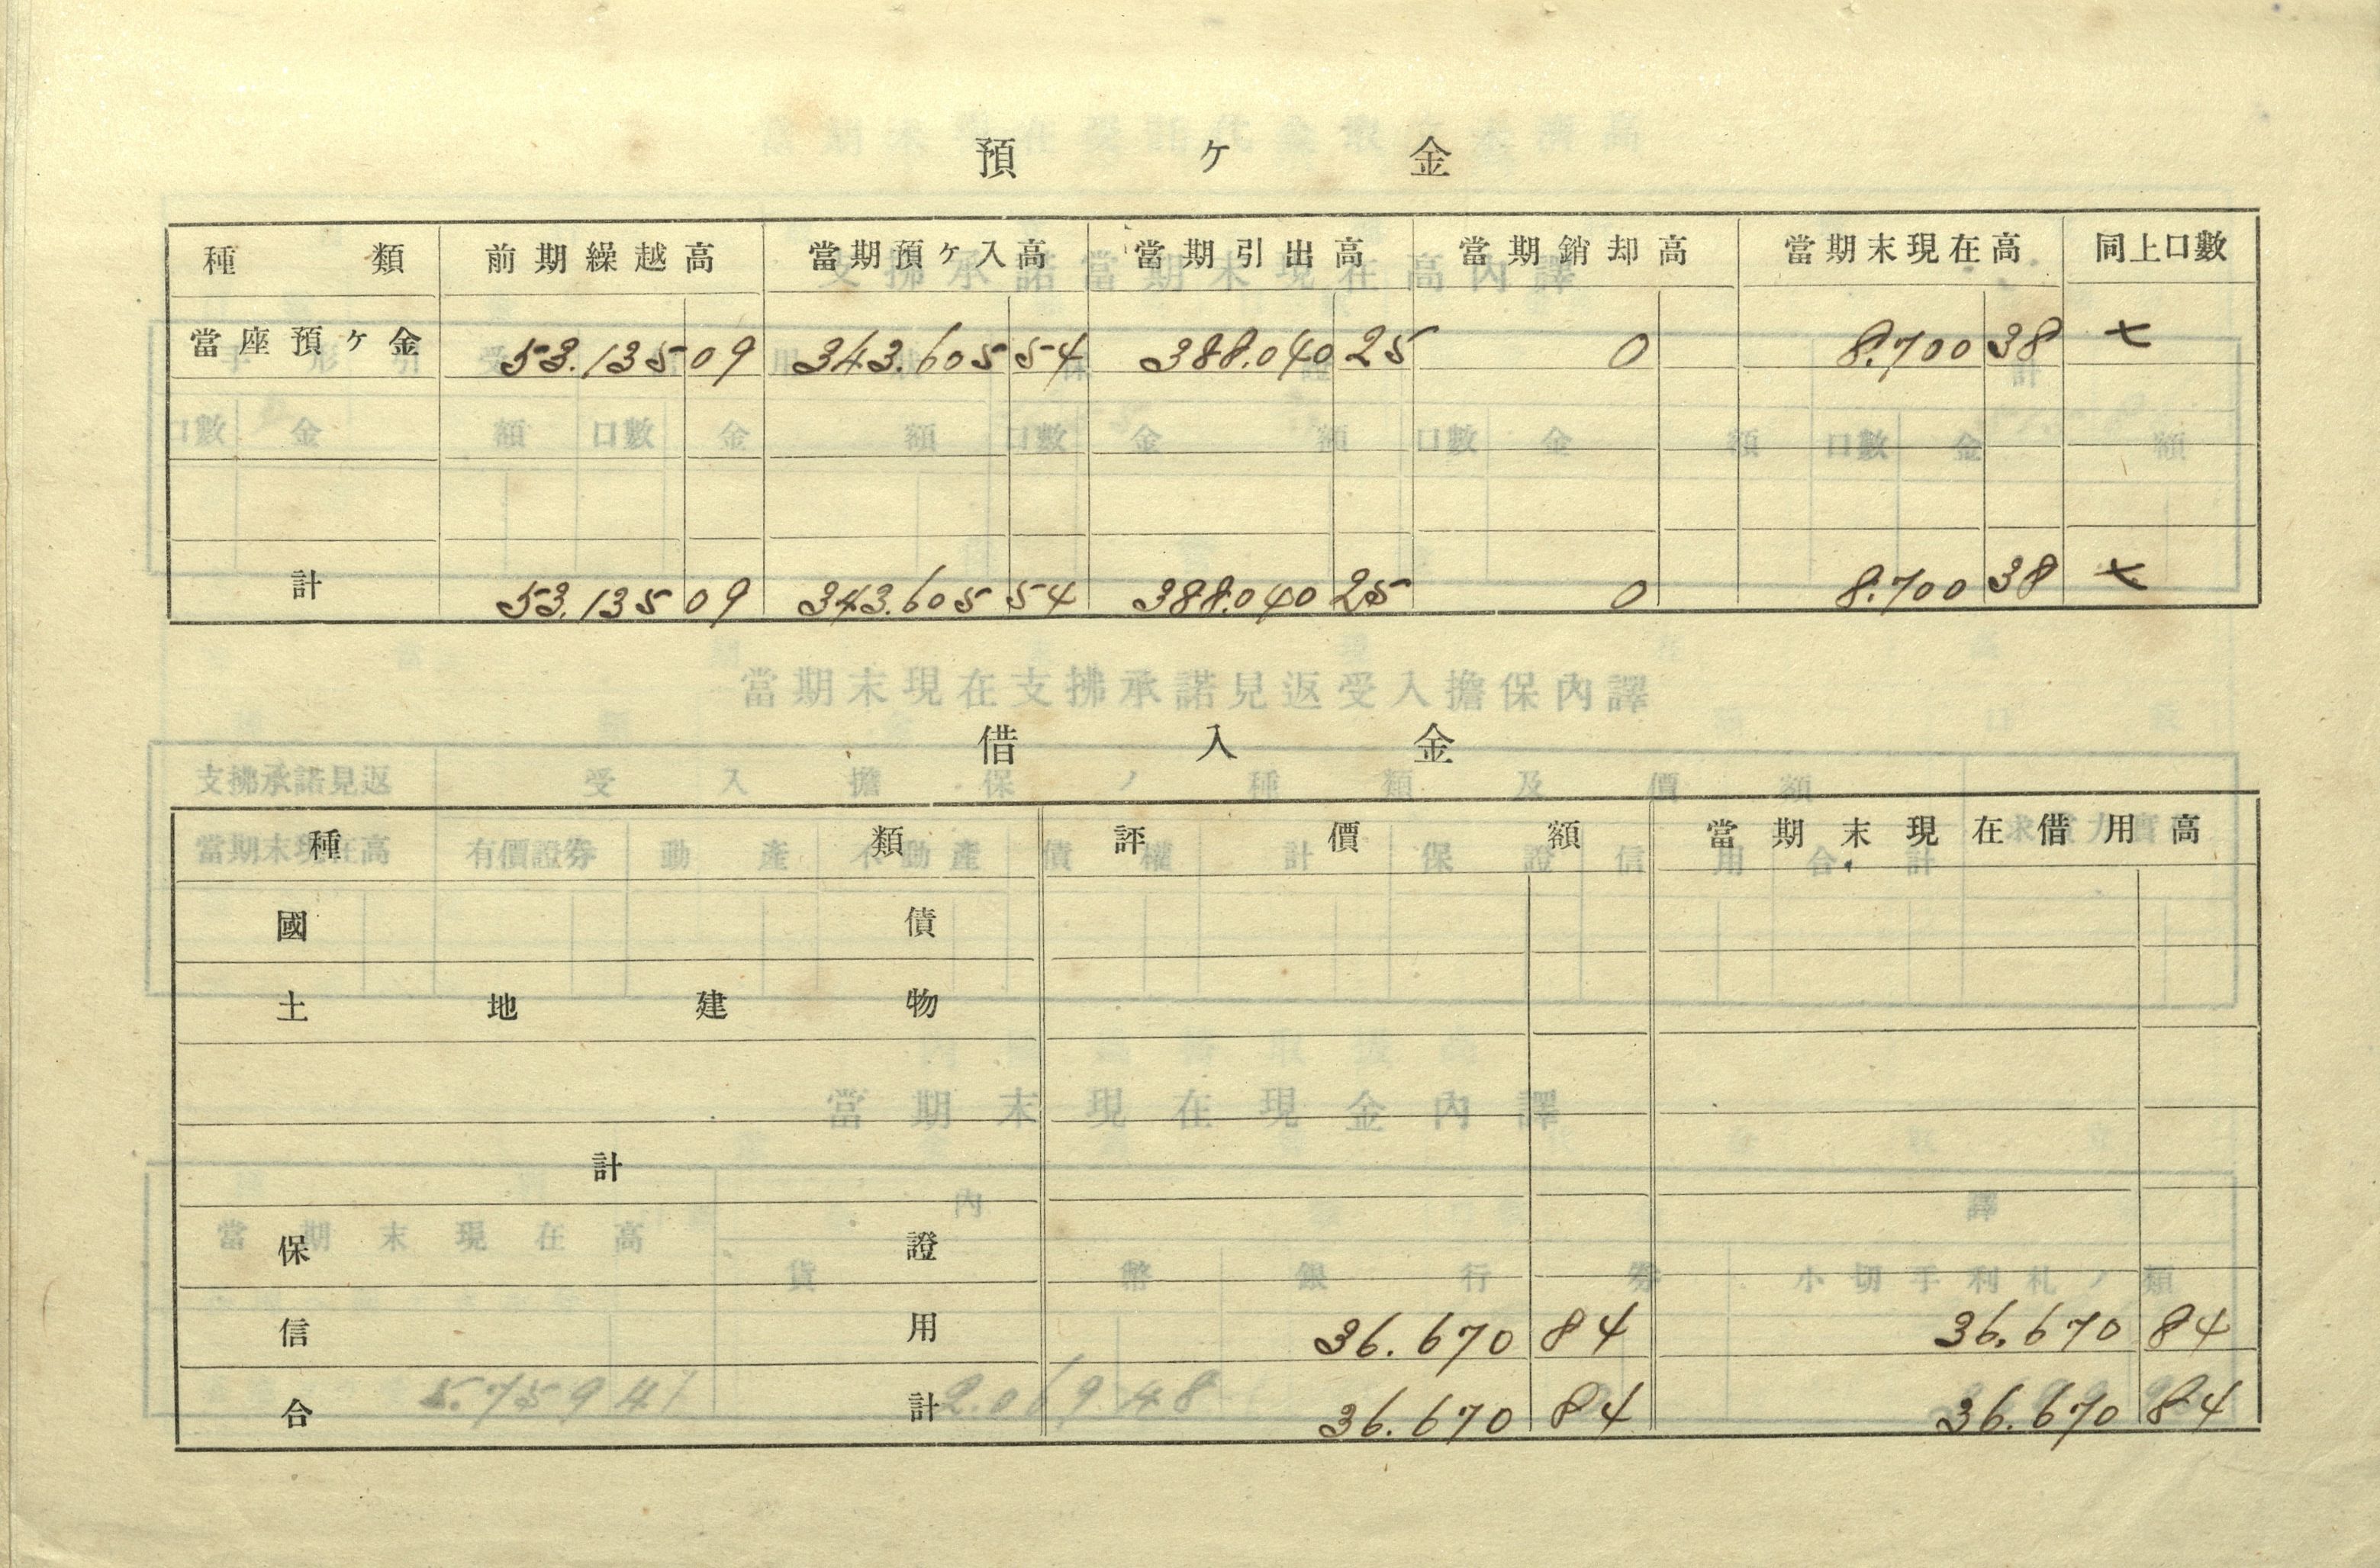 預ケ金
種類 前期繰越高 當期預ケ入高 當期引出高 當期銷却高 當期末現在高 同上口數
當座預ケ金 53.135 09 343.605 54 388.040 25 0 8.700 38 七
計 53.135 09 343.605 54 388.040 25 0 8.700 38 七
借入金
種類 評價額 當期末現在借用高
國債
土地建物
計
保證
信用 36.670 84 36.670 84
合計 36.670 84 36.670 84